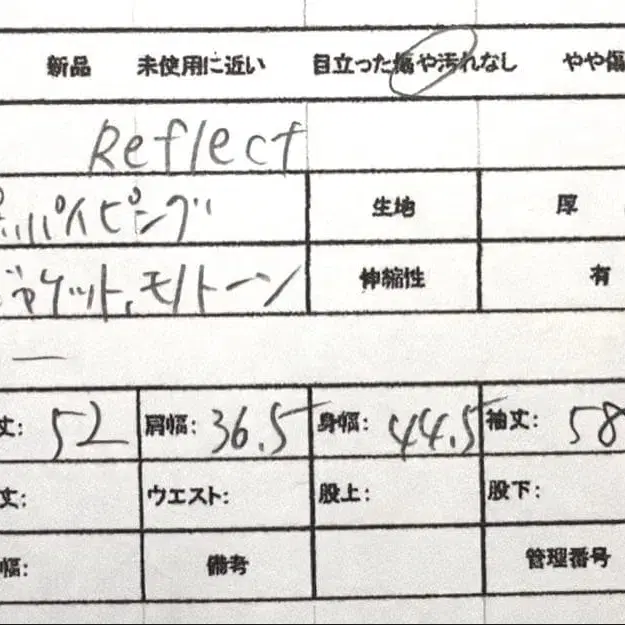 新品 未使用に近い 目立った傷や汚れなし やや傷
Reflect
パイピング 生地 厚
ジャケット、モノトーン 伸縮性 有
丈: 52 肩幅: 36.5 身幅: 44.5 袖丈: 58
丈: ウエスト: 股上: 股下:
幅: 備考 管理番号